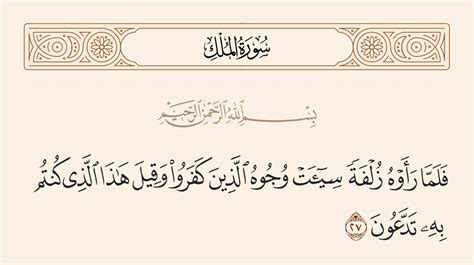 سُورَةُ المُلْكِ
بِسْمِ ٱللَّهِ ٱلرَّحْمَٰنِ ٱلرَّحِيمِ
فَلَمَّا رَأَوْهُ زُلْفَةً سِيٓـَٔتْ وُجُوهُ ٱلَّذِينَ كَفَرُوا۟ وَقِيلَ هَٰذَا ٱلَّذِى كُنتُم
بِهِۦ تَدَّعُونَ ٢٧